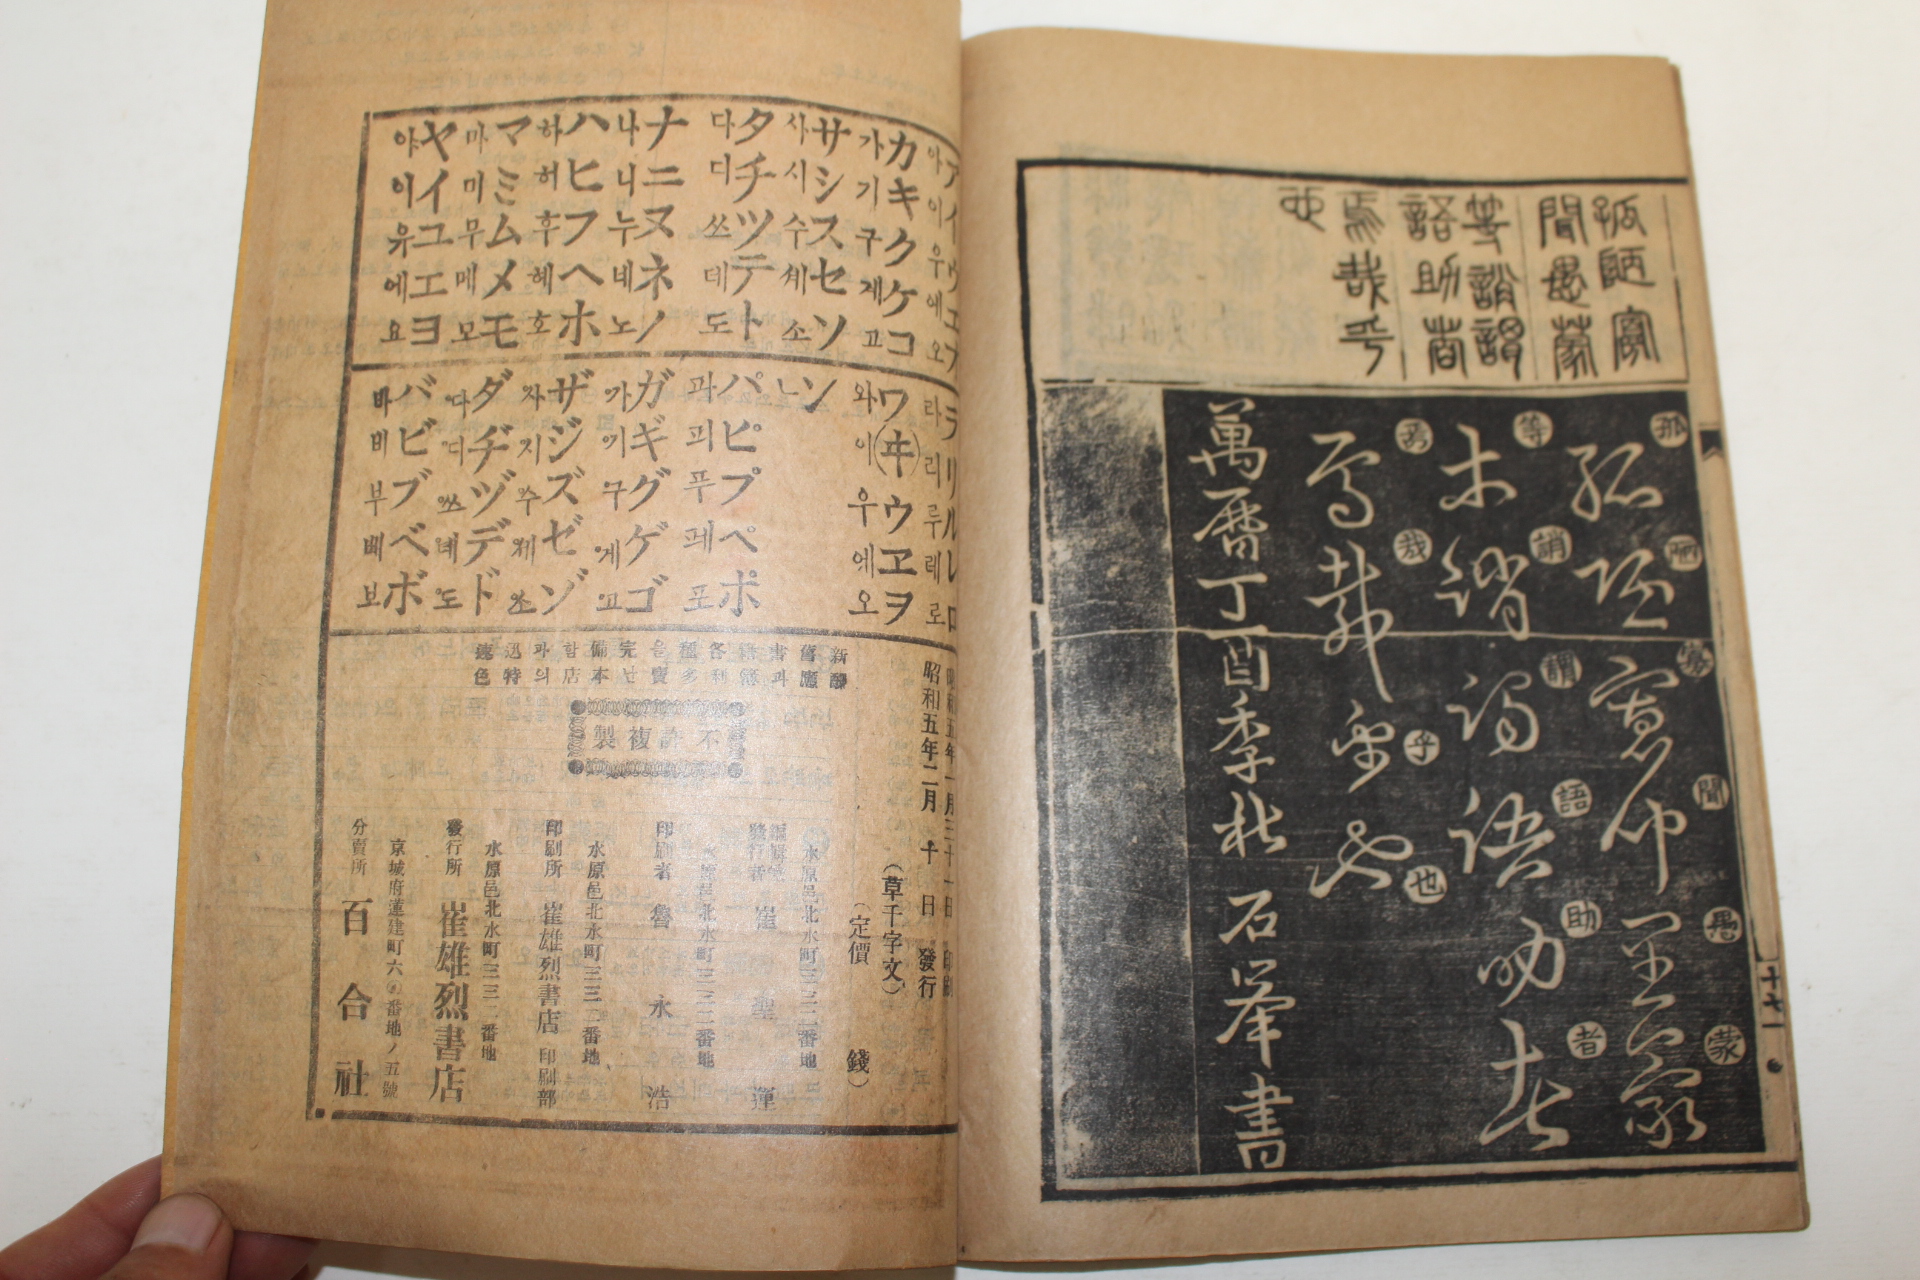 孤陋寡
聞愚蒙
等誚謂
語助者
焉哉乎
也
孤陋寡聞愚蒙
等誚謂語助者
焉哉乎也
萬曆丁酉季秋 石峯書
十七
アイウエオ
아이우에오
カキクケコ
가기구게고
サシスセソ
사시수세소
タチツテト
다디쓰데도
ナニヌネノ
나니누네노
ハヒフヘホ
하허후헤호
マミムメモ
마미무메모
ヤイユエヨ
야이유에요
ラリルレロ
라리루레로
ワヰウヱヲ
와이우에오
ン
パピプペポ
파피푸페포
ガギグゲゴ
ザジズゼゾ
ダヂヅデド
バビブベボ
바비부베보
昭和五年一月三十一日 印刷
昭和五年二月 十 日 發行
(草千字文)
(定價 錢)
不許複製
水原邑北水町三三二番地
水原邑北水町三三二番地
印刷者 魯永浩
水原邑北水町三三二番地
印刷所 崔雄烈書店印刷部
水原邑北水町三三二番地
發行所 崔雄烈書店
分賣所 百合社